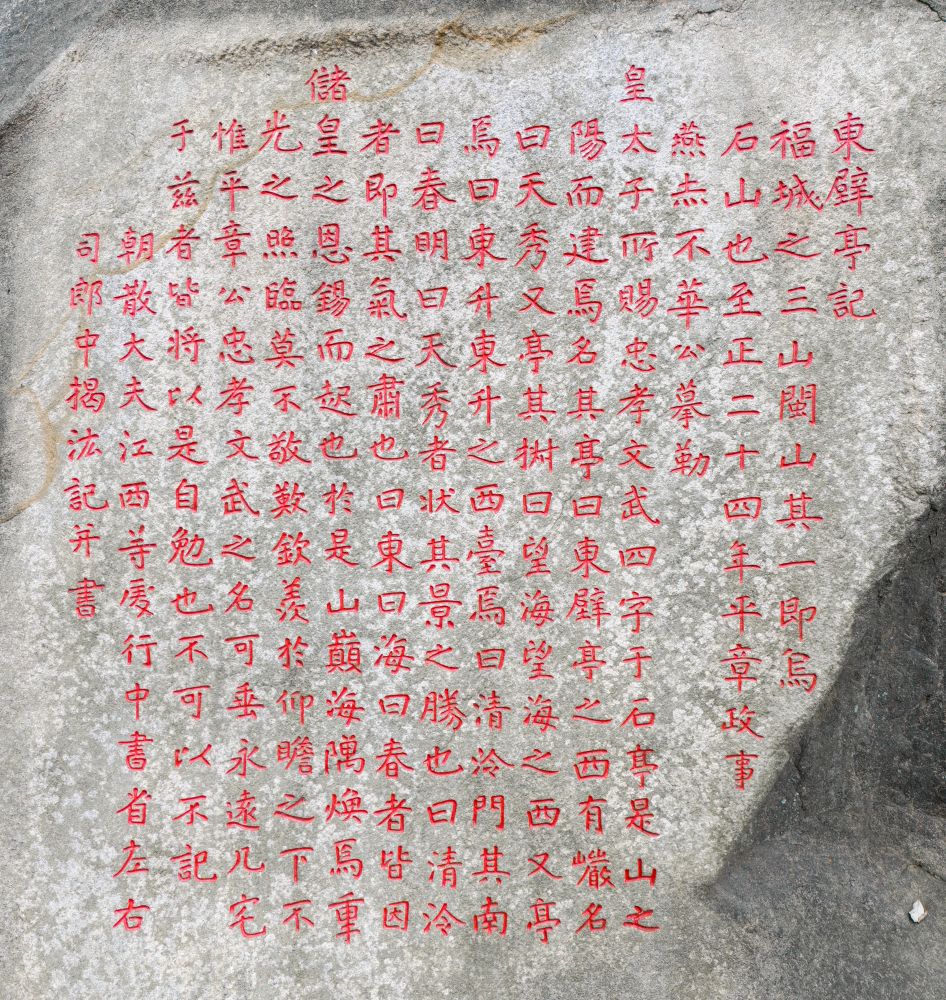 東壁亭記
福城之三山閩山其一即烏
石山也至正二十四年平章政事
燕赤不華公摹勒
皇太子所賜忠孝文武四字于石亭是山之
陽而建焉名其亭曰東壁亭之西有巖名
曰天秀又亭其樹曰望海望海之西又亭
焉曰東升東升之西臺焉曰清泠門其南
曰春明曰天秀者狀其景之勝也曰清泠
者即其氣之肅也曰東曰海曰春者皆因
儲皇之恩錫而起也於是山巔海隅煥焉重
光之照臨莫不敬歎欽羨於仰瞻之下不
惟平章公忠孝文武之名可垂永遠凡宅
于茲者皆將以是自勉也不可以不記
朝散大夫江西等處行中書省左右
司郎中揭汯記并書